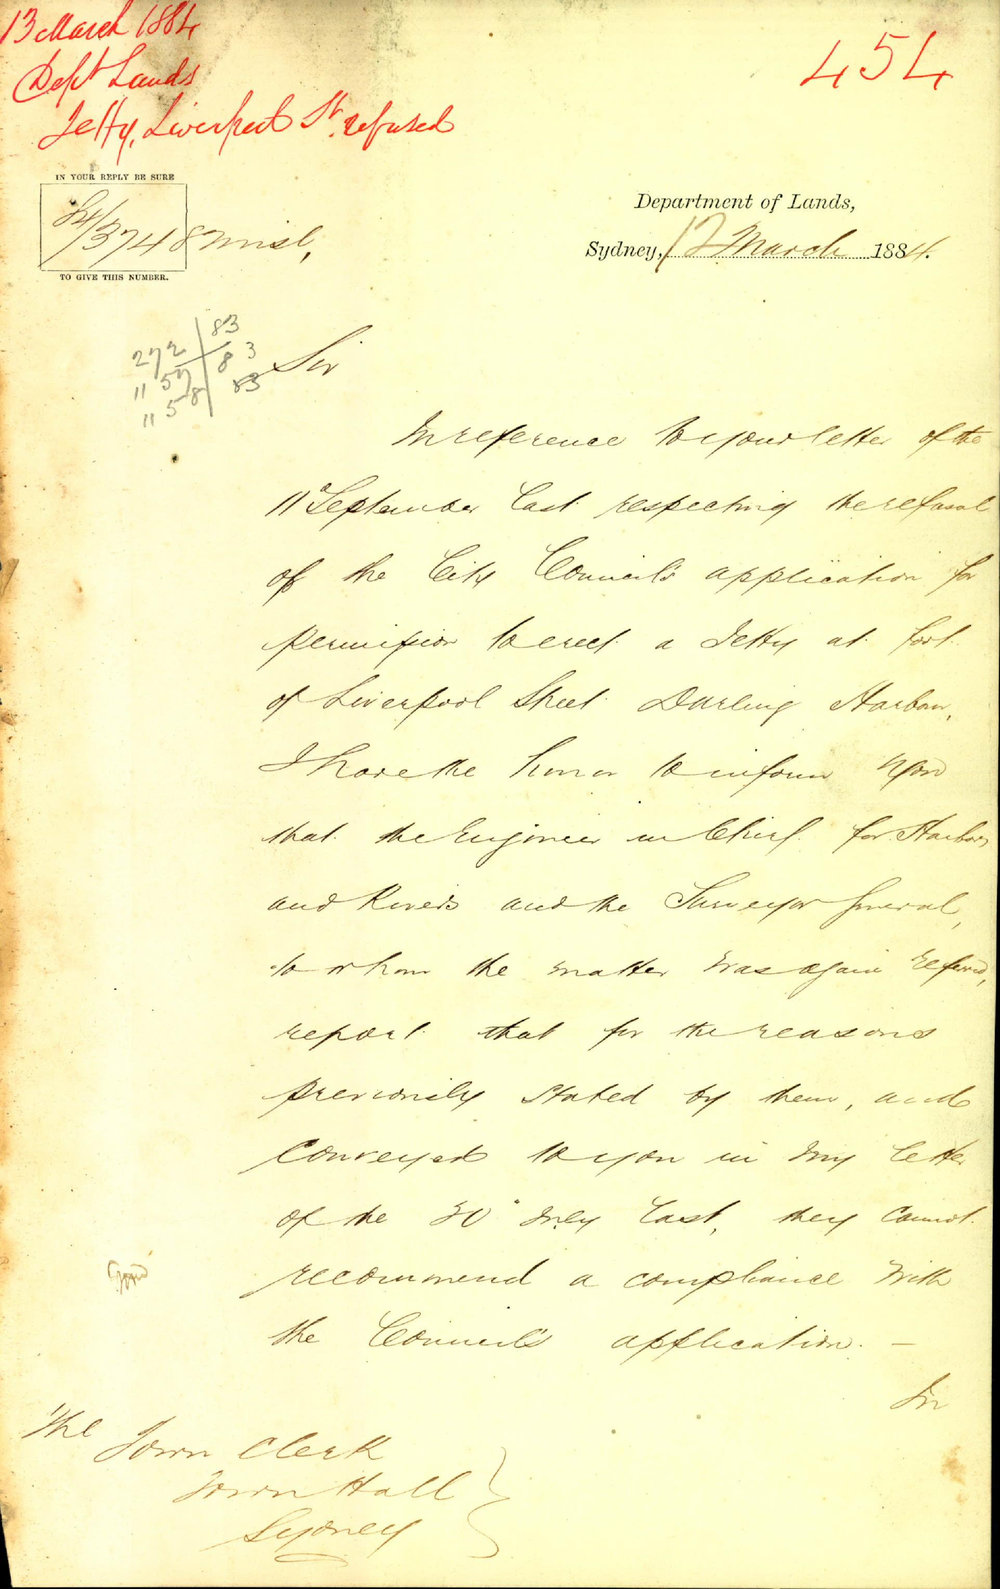 13 March 1884
Dept Lands
Jetty, Liverpool St. refused
454
IN YOUR REPLY BE SURE
84/3748 Misl,
TO GIVE THIS NUMBER.
Department of Lands,
Sydney, 12 March 1884.
272/83
1157/83
1158/83
Sir
In reference to your letter of the
11th September last respecting the refusal
of the City Council's application for
permission to erect a Jetty at foot
of Liverpool Street Darling Harbour,
I have the honor to inform you
that the Engineer in Chief for Harbors
and Rivers and the Surveyor General,
to whom the matter was again referred,
report that for the reasons
previously stated by them, and
conveyed to you in my letter
of the 30th July last, they cannot
recommend a compliance with
the Council's application. —
In
The Town Clerk
Town Hall
Sydney